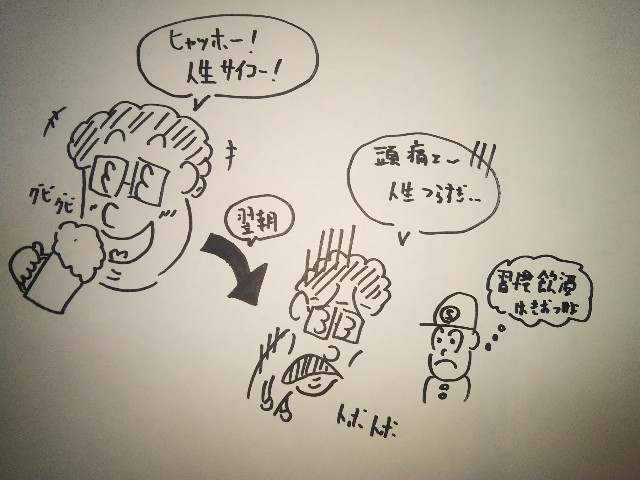 ヒャッホー!
人生サイコー!
グビ
グビ
翌朝
頭痛ェ〜
人生つらすぎ…
習慣飲酒
はきおつけよ
S
トボトボ